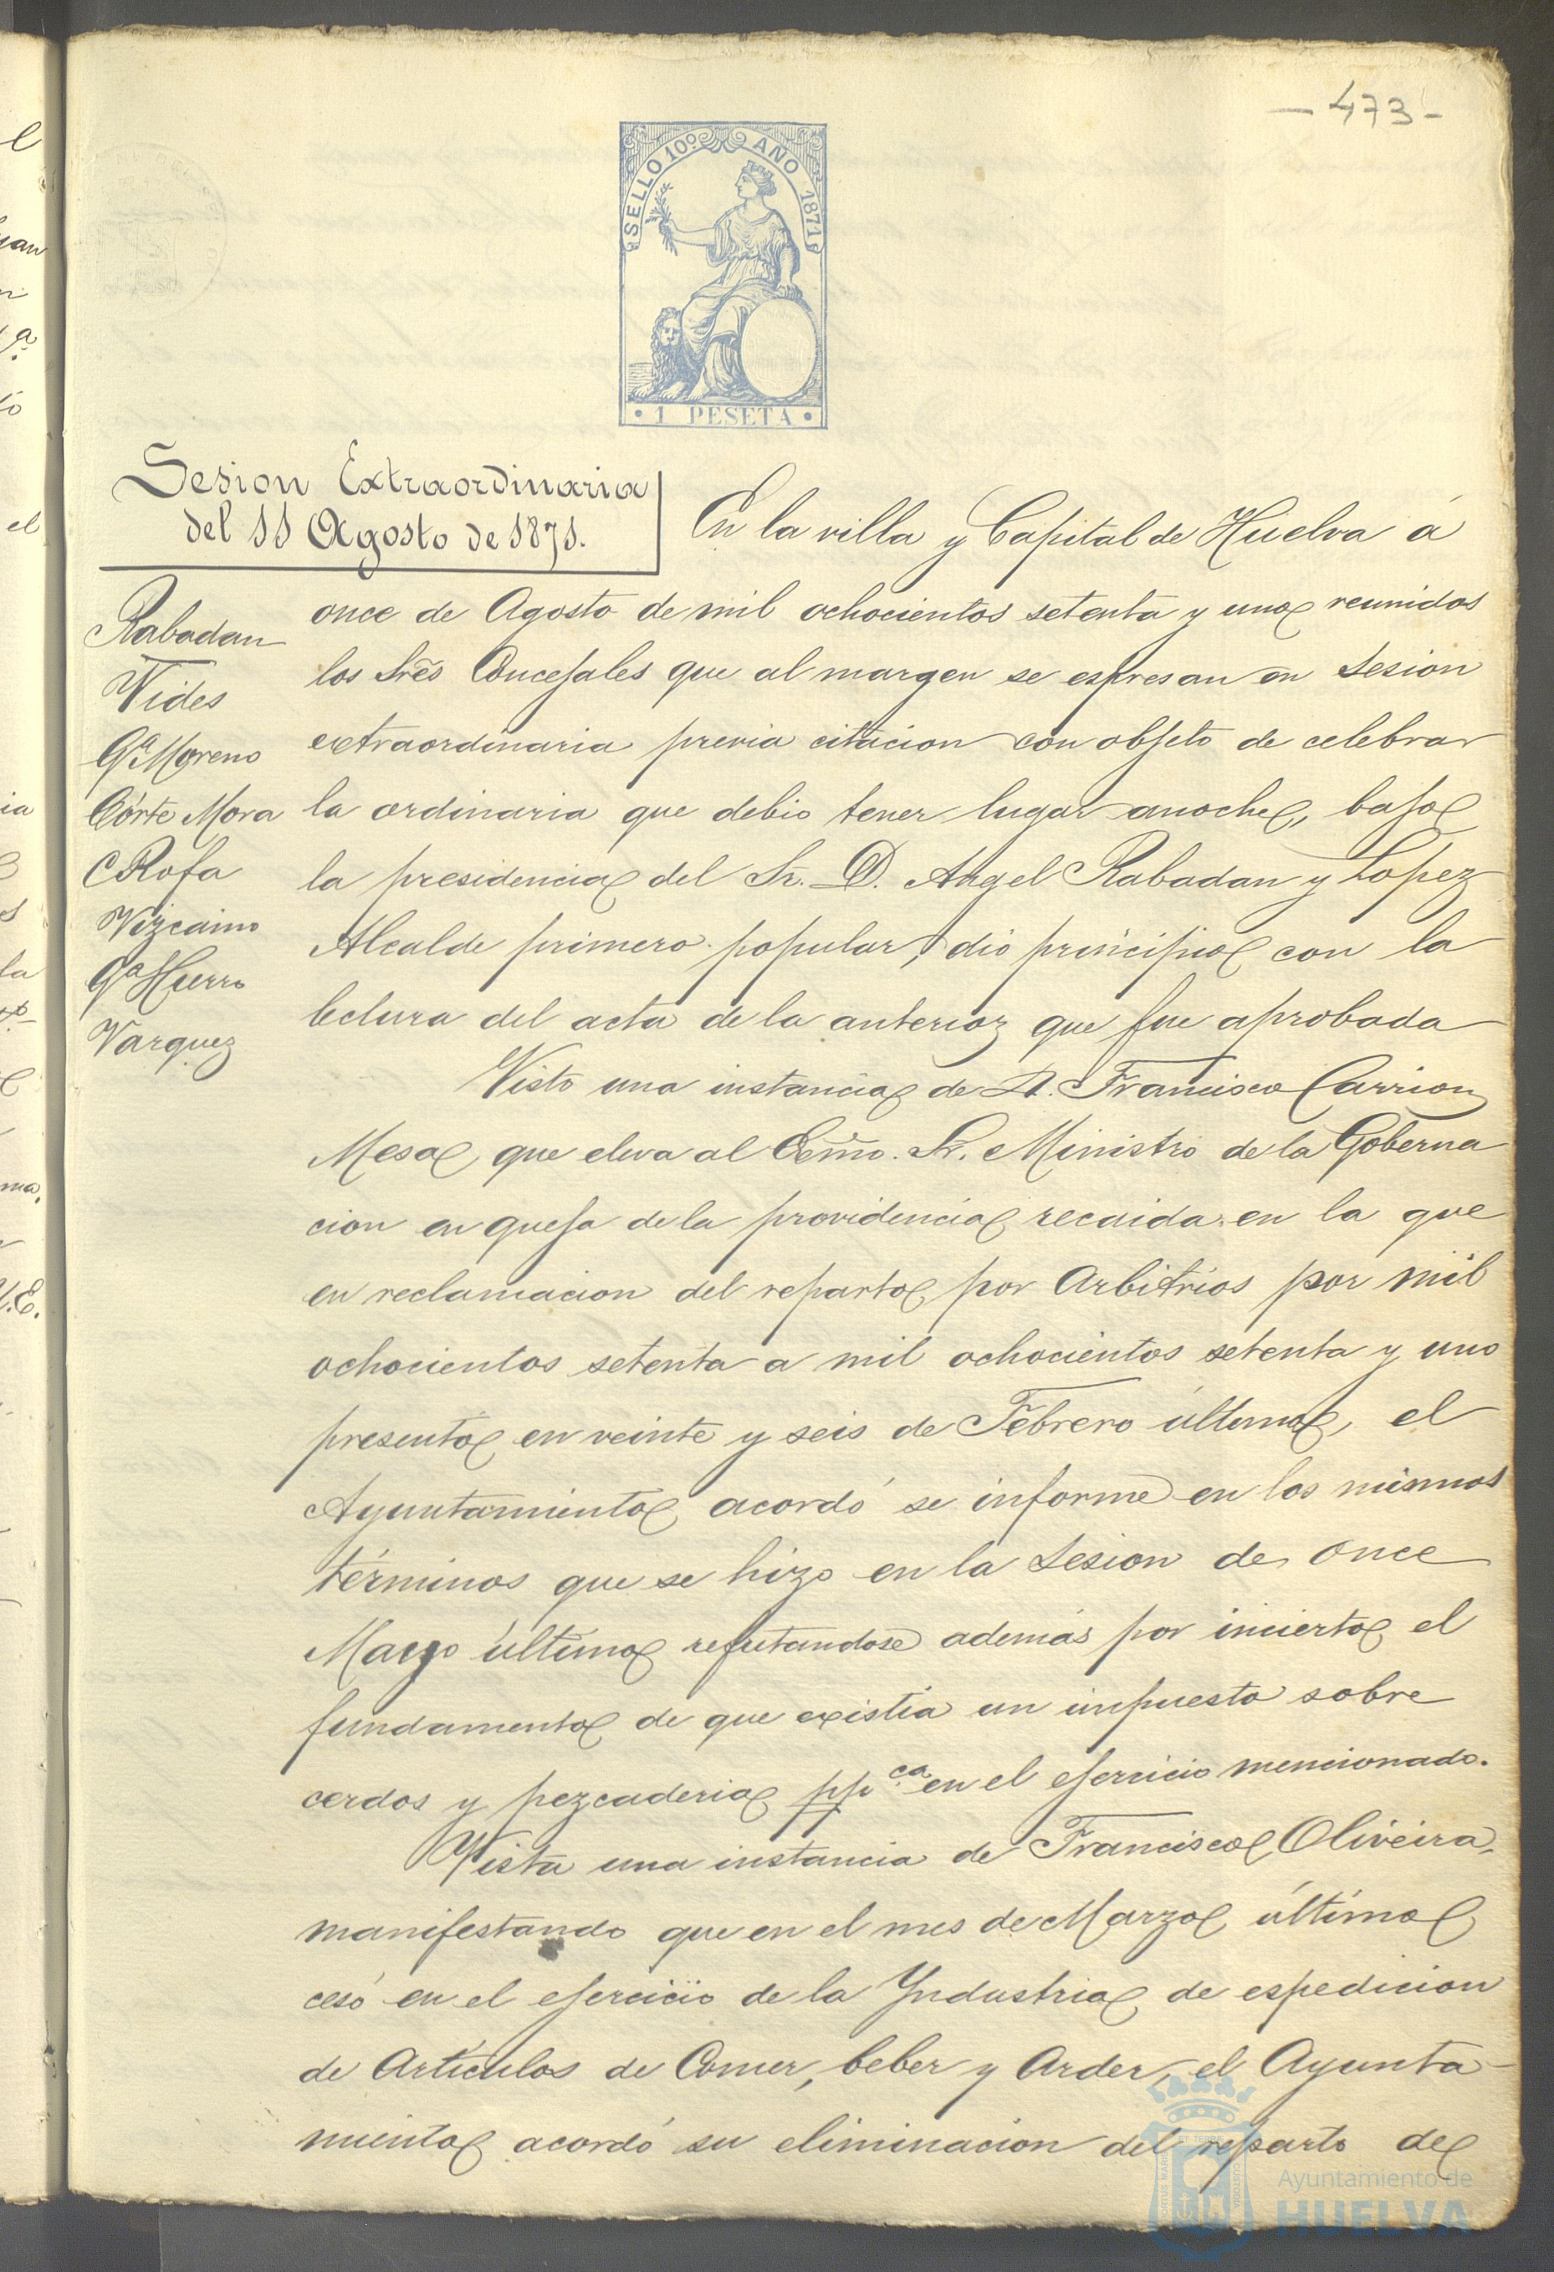 - 473 -
SELLO 10º AÑO 1871
1 PESETA
Sesion Extraordinaria
del 11 Agosto de 1871.
Rabadan
Vides
Gª Moreno
Córte Mora
Rofa
Vizcaino
Gª Hierro
Vazquez
En la villa y Capital de Huelva á
once de Agosto de mil ochocientos setenta y uno reunidos
los Sres Concejales que al margen se espresan en Sesion
extraordinaria previa citacion con objeto de celebrar
la ordinaria que debio tener lugar anoche, bajo
la presidencia del Sr. D. Angel Rabadan y Lopez
Alcalde primero popular, dió principio con la
lectura del acta de la anterior que fue aprobada
Visto una instancia de D. Francisco Carrion
Mesa que eleva al Exmo. Sr. Ministro de la Goberna
cion en queja de la providencia recaida en la que
en reclamacion del reparto por Arbitrios por mil
ochocientos setenta a mil ochocientos setenta y uno
presento en veinte y seis de Febrero último, el
Ayuntamiento acordó se informe en los mismos
términos que se hizo en la Sesion de once
Mayo último refutandose además por incierto el
fundamento de que existia un impuesto sobre
cerdos y pezcaderia ppca en el ejercicio mencionado.
Vista una instancia de Francisco Oliveira,
manifestando que en el mes de Marzo último
cesó en el ejercicio de la Yndustria de espedicion
de Artículos de Comer, beber y Arder, el Ayunta-
miento acordó su eliminacion del reparto de
Ayuntamiento de
HUELVA